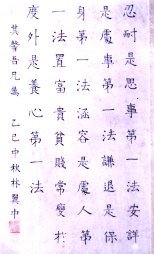 忍耐是思事第一法安詳
是處事第一法謙退是保
身第一法涵容是處人第
一法置富貴貧賤常變扵
度外是養心第一法
乙巳中秋林翼中